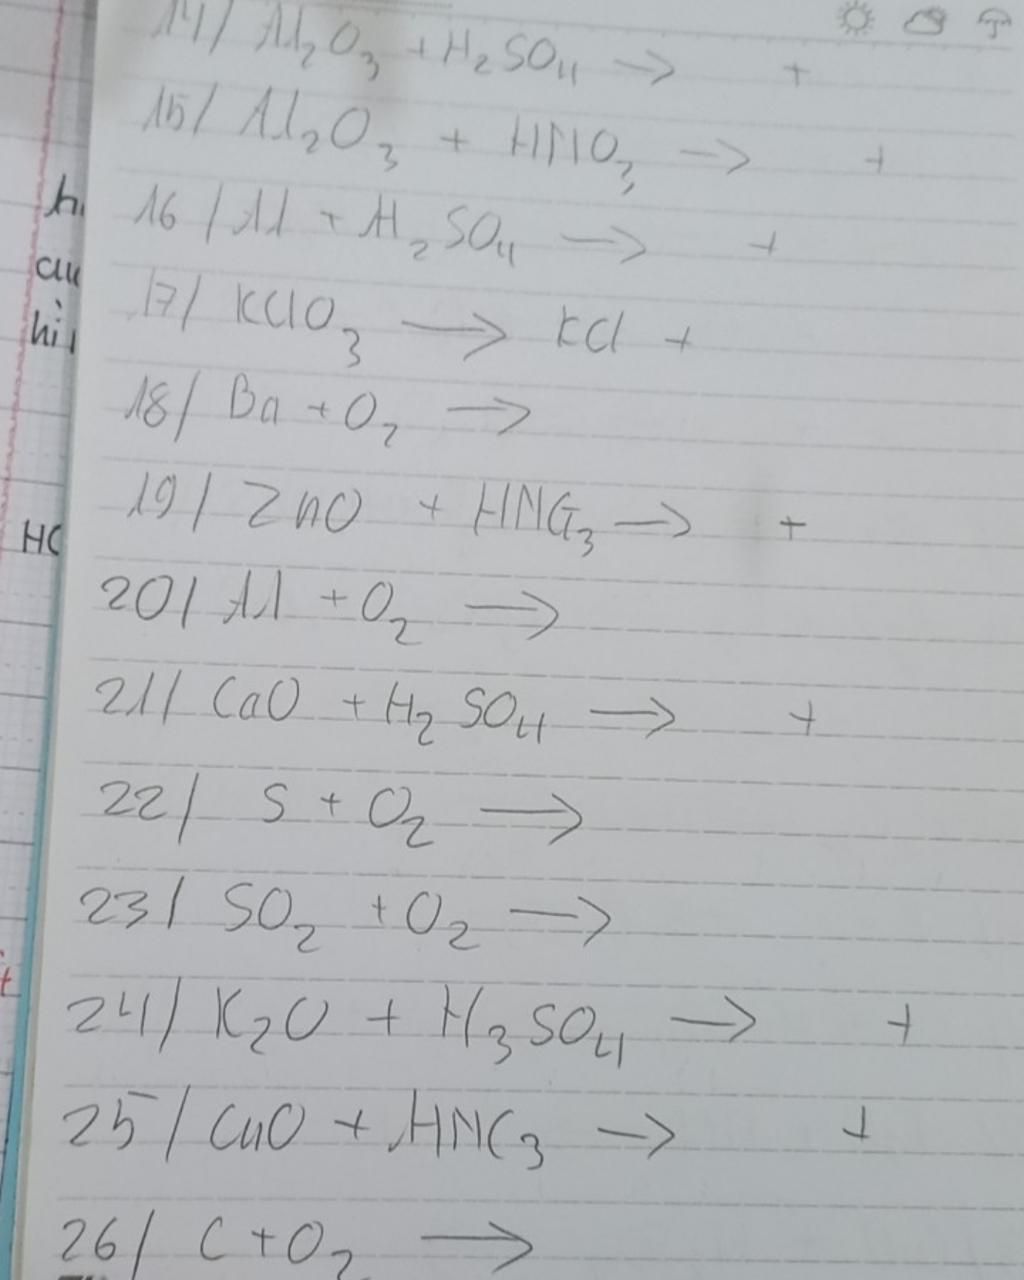 14/ Al₂O₃ + H₂SO₄ → +
15/ Al₂O₃ + HNO₃ → +
16/ Al + H₂SO₄ → +
17/ KClO₃ → KCl +
18/ Ba + O₂ →
19/ ZnO + HNO₃ → +
20/ Al + O₂ →
21/ CaO + H₂SO₄ → +
22/ S + O₂ →
23/ SO₂ + O₂ →
24/ K₂O + H₃SO₄ → +
25/ CuO + HNO₃ → +
26/ C + O₂ →